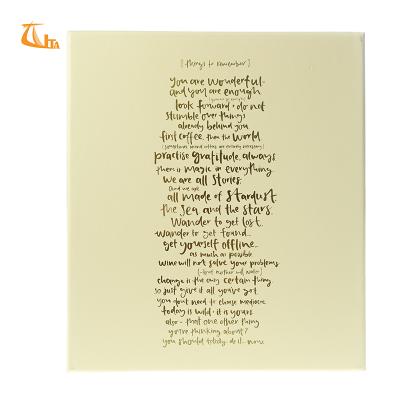 TA
[things to remember]
you are wonderful
and you are enough
look forward · do not
stumble over things
already behind you.
first coffee, then the world.
(sometimes second coffees are entirely necessary)
practise gratitude, always
there is magic in everything
we are all stories.
(and we are)
all made of stardust
the sea and the stars.
wander to get lost.
wander to get found...
get yourself offline...
as much as possible
wine will not solve your problems
(- but neither will water)
change is the only certain thing
so just give it all you've got
you dont need to choose mediocre
today is wild · it is yours
also - that one other thing
you're thinking about?
you should totally do it... now